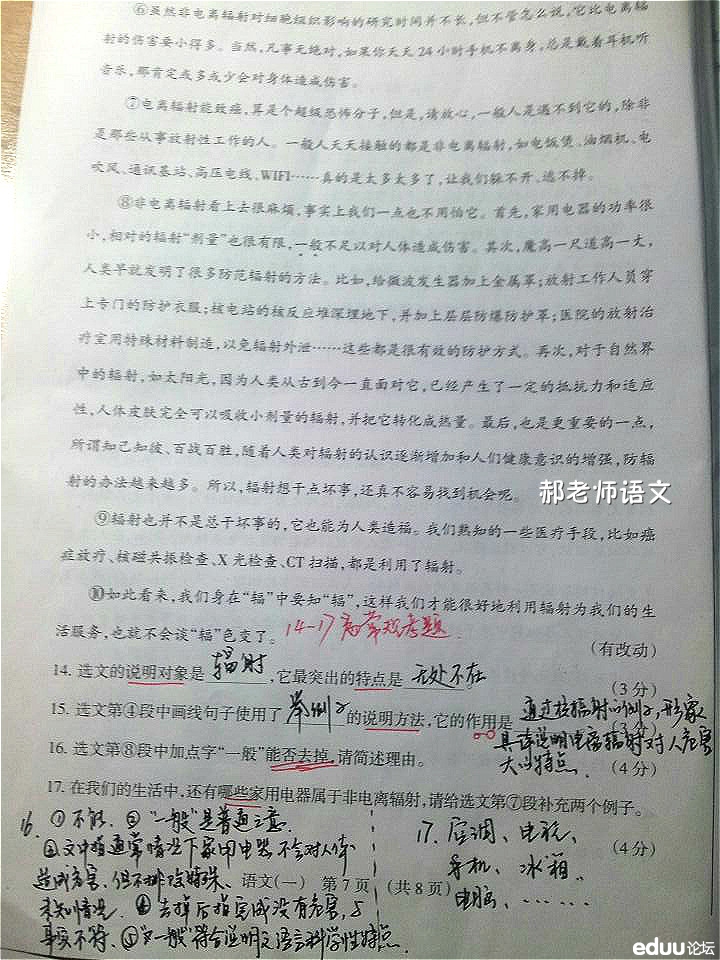 ⑥虽然非电离辐射对细胞组织影响的研究时间并不长,但不管怎么说,它比电离辐
射的伤害要小得多。当然,凡事无绝对,如果你天天24小时手机不离身,总是戴着耳机听
音乐,那肯定或多或少会对身体造成伤害。
⑦电离辐射能致癌,算是个超级恐怖分子,但是,请放心,一般人是遇不到它的,除非
是那些从事放射性工作的人。一般人天天接触的都是非电离辐射,如电饭煲、油烟机、电
吹风、通讯基站、高压电线、WIFI……真的是太多太多了,让我们躲不开、逃不掉。
⑧非电离辐射看上去很麻烦,事实上我们一点也不用怕它。首先,家用电器的功率很
小,相对的辐射“剂量”也很有限,一般不足以对人体造成伤害。其次,魔高一尺道高一丈,
人类早就发明了很多防范辐射的方法。比如,给微波发生器加上金属罩;放射工作人员穿
上专门的防护衣服;核电站的核反应堆深埋地下,并加上层层防爆防护罩;医院的放射治
疗室用特殊材料制造,以免辐射外泄……这些都是很有效的防护方式。再次,对于自然界
中的辐射,如太阳光,因为人类从古到今一直面对它,已经产生了一定的抵抗力和适应
性,人体皮肤完全可以吸收小剂量的辐射,并把它转化成热量。最后,也是更重要的一点,
所谓知己知彼、百战百胜,随着人类对辐射的认识逐渐增加和人们健康意识的增强,防辐
射的办法越来越多。所以,辐射想干点坏事,还真不容易找到机会呢。
郝老师语文
⑨辐射也并不是总干坏事的,它也能为人类造福。我们熟知的一些医疗手段,比如癌
症放疗、核磁共振检查、X光检查、CT扫描,都是利用了辐射。
⑩如此看来,我们身在“辐”中要知“辐”,这样我们才能很好地利用辐射为我们的生
活服务,也就不会谈“辐”色变了。 14-17为常规考题
(有改动)
14. 选文的说明对象是 辐射 ,它最突出的特点是 无处不在 。
(3分)
15. 选文第④段中画线句子使用了 举例子 的说明方法,它的作用是 通过核辐射的例子,形象
(3分)
具体说明电离辐射对人危害
16. 选文第⑧段中加点字“一般”能否去掉,请简述理由。
大的特点. (4分)
17. 在我们的生活中,还有哪些家用电器属于非电离辐射,请给选文第⑦段补充两个例子。
(4分)
16. ①不能. ②“一般”是普通之意.
③文中指通常情况下家用电器不会对人体
造成危害、但不排除特殊、
未知情况. ④去掉后指完全没有危害,与
事实不符、⑤“一般”符合说明文语言科学性特点.
17. 空调、电视、
手机、冰箱、
电脑、……
语文(一) 第7页 (共8页)
eduu论坛